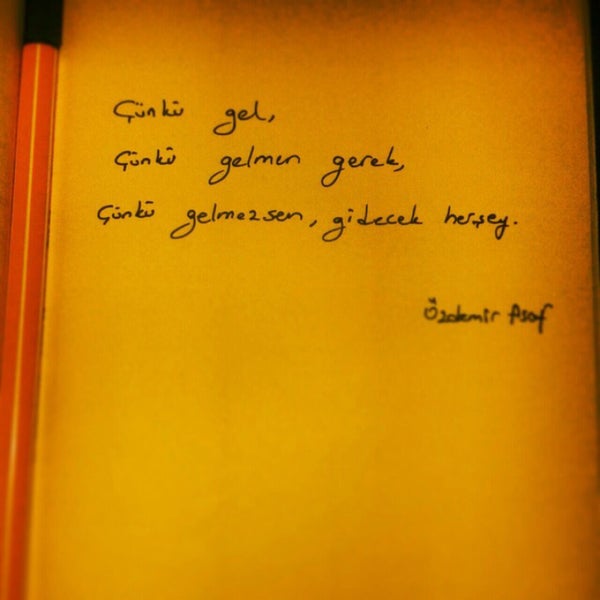 Çünkü gel,
Çünkü gelmen gerek,
Çünkü gelmezsen, gidecek herşey.
Özdemir Asaf